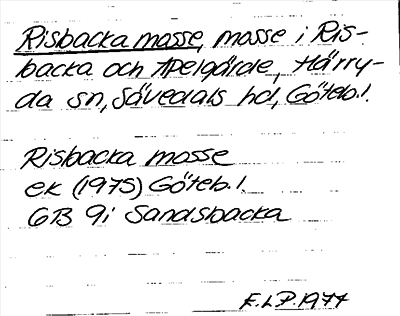 Risbacka mosse, mosse i Ris-
backa och Apelgärde, Härry-
da sn, Sävedals hd, Göteb.l.
Risbacka mosse
ek (1975) Göteb.l.
6B 9i Sandsbacka
F.L.P. 1977